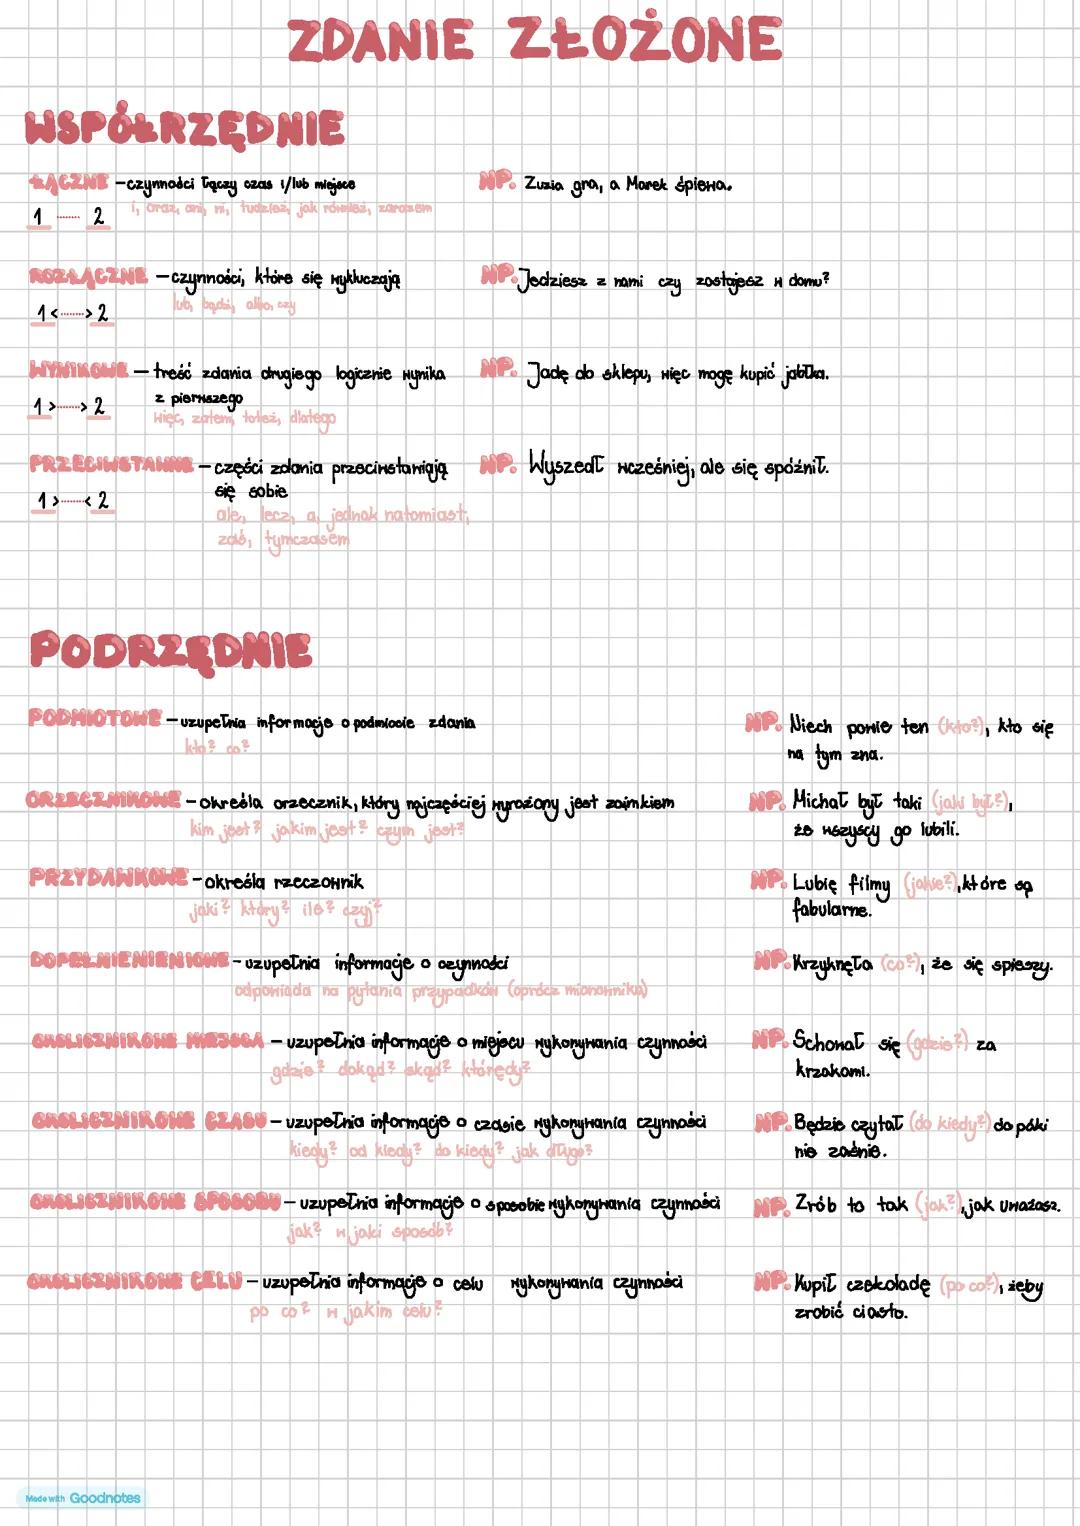 ZDANIE ZŁOŻONE
WSPÓŁRZĘDNIE
ŁĄCZNE – czynności łączy czas i/lub miejsce
i, oraz, ani, ni, tudzież, jak również, zarazem
1 ........ 2
NP. Zuzia gra, a Marek śpiewa.
ROZŁĄCZNE – czynności, które się wykluczają
lub, bądź, albo, czy
1 <........> 2
NP. Jedziesz z nami czy zostajesz w domu?
WYNIKOWE – treść zdania drugiego logicznie wynika
z pierwszego
więc, zatem, toteż, dlatego
1 >........> 2
NP. Jadę do sklepu, więc mogę kupić jabłka.
PRZECIWSTAWNE – części zdania przeciwstawiają
się sobie
ale, lecz, a, jednak natomiast,
zaś, tymczasem
1 >........< 2
NP. Wyszedł wcześniej, ale się spóźnił.
PODRZĘDNIE
PODMIOTOWE – uzupełnia informacje o podmiocie zdania
kto? co?
NP. Niech powie ten (kto?), kto się
na tym zna.
ORZECZNIKOWE – określa orzecznik, który najczęściej wyrażony jest zaimkiem
kim jest? jakim jest? czym jest?
NP. Michał był taki (jaki był?),
że wszyscy go lubili.
PRZYDAWKOWE – określa rzeczownik
jaki? który? ile? czyj?
NP. Lubię filmy (jakie?), które są
fabularne.
DOPEŁNIENIENIOWE – uzupełnia informacje o czynności
odpowiada na pytania przypadków (oprócz mianownika)
NP. Krzyknęła (co?), że się spieszy.
OKOLICZNIKOWE MIEJSCA – uzupełnia informacje o miejscu wykonywania czynności
gdzie? dokąd? skąd? którędy?
NP. Schował się (gdzie?) za
krzakami.
OKOLICZNIKOWE CZASU – uzupełnia informacje o czasie wykonywania czynności
kiedy? od kiedy? do kiedy? jak długo?
NP. Będzie czytał (do kiedy?) do póki
nie zaśnie.
OKOLICZNIKOWE SPOSOBU – uzupełnia informacje o sposobie wykonywania czynności
jak? w jaki sposób?
NP. Zrób to tak (jak?), jak uważasz.
OKOLICZNIKOWE CELU – uzupełnia informacje o celu wykonywania czynności
po co? w jakim celu?
NP. Kupił czekoladę (po co?), żeby
zrobić ciasto.
Made with Goodnotes